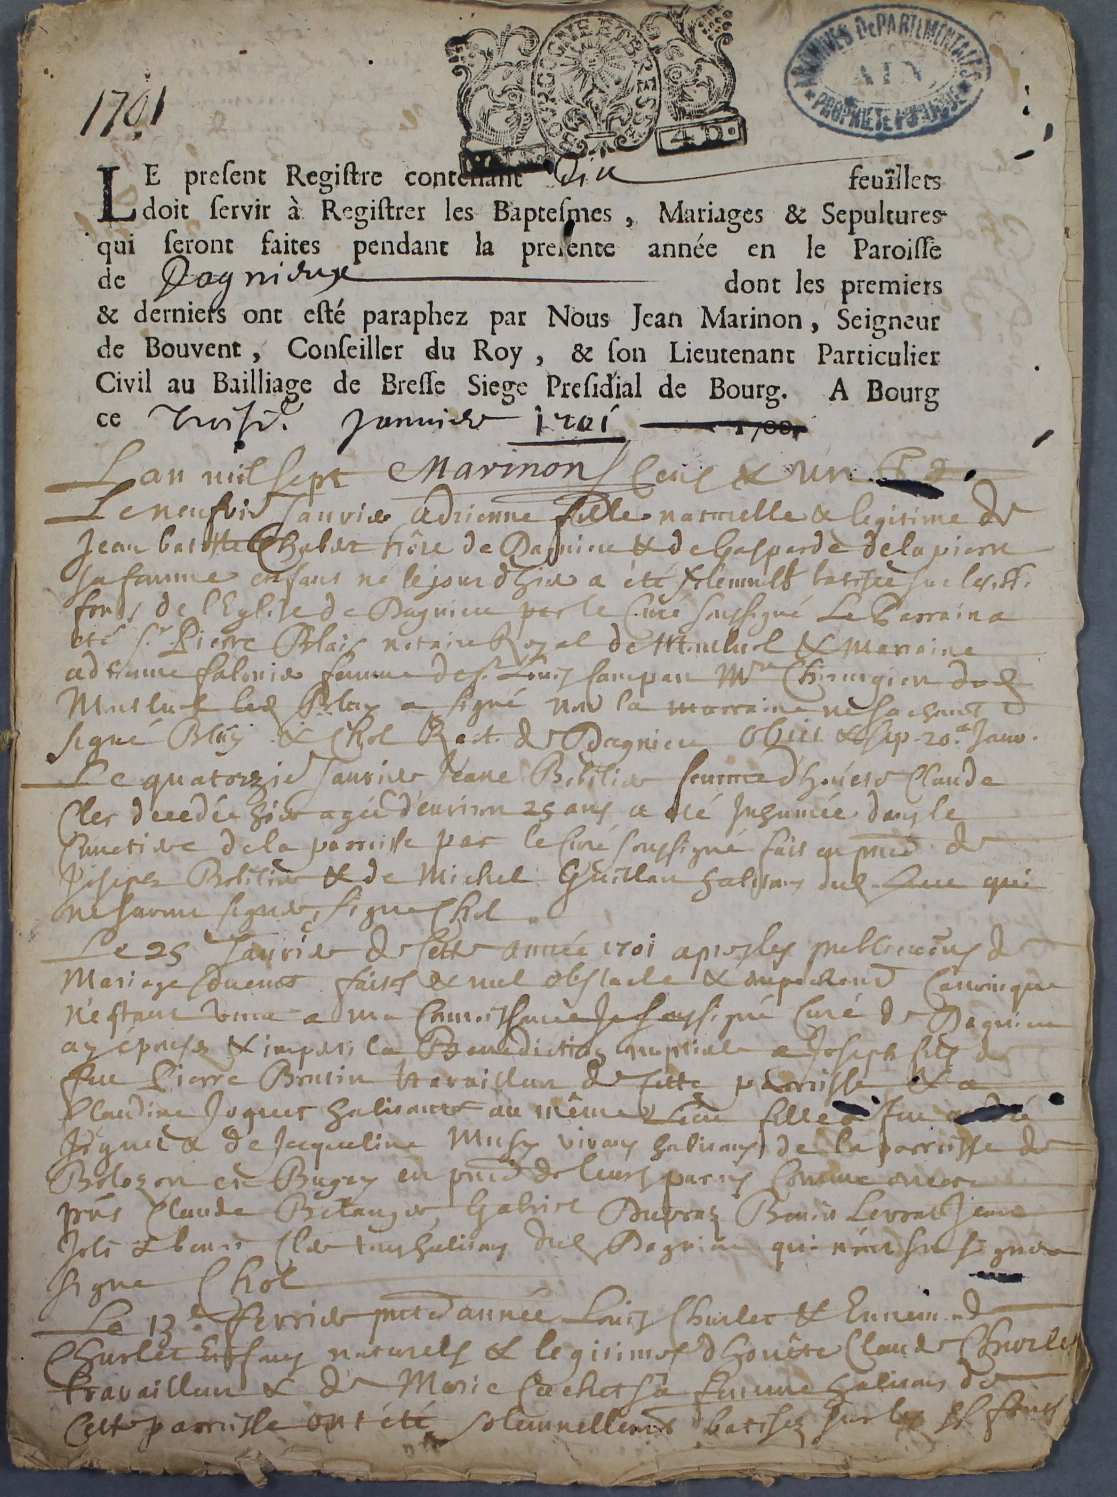 BOURGOGNE ET BRESSE
4. D.
ARCHIVES DEPARTEMENTALES
AIN
PROPRIÉTÉ PUBLIQUE
1701
LE present Registre contenant Dix feuillets
doit servir à Registrer les Baptesmes, Mariages & Sepultures
qui seront faites pendant la presente année en le Paroisse
de Dagnieux dont les premiers
& derniers ont esté paraphez par Nous Jean Marinon, Seigneur
de Bouvent, Conseiller du Roy, & son Lieutenant Particulier
Civil au Bailliage de Bresse Siege Presidial de Bourg. A Bourg
ce Janvier 1701 1700.
Marinon
L'an mil sept Cens & un
Le neufvie Janvier Adrienne fille naturelle & legitime de
Jean batiste Chabert de Dagnieu & de Gasparde delapierre
sa femme enfant né le jour d'hier a été solemnellt batisée sur les
fonds de l'Eglise de Dagnieu par le Curé soussigné Le Parrain a
été Sr Pierre Blais notaire Royal de Montluel & marraine
adrienne femme de Sr Louis Campan Mtre Chirurgien dud
Montluel led Blais a signé non la marraine ne sachant
signé Blais & Chol Rect. de Dagnieu Obiit & sep. 20e Janv.
Le quatorzie Janvier Jeane femme d'honeste Claude
Cler decedée hier agée d'environ 25 ans a été Inhumée dans le
Cimetiere de la parroisse par le Curé soussigné fait en pnce de
Joseph & de Michel Guillan habitans dud. Lieu qui
ne savent signer, signe Chol
Le 25 Janvier de Cette année 1701 apres les publications de
Mariage faites & nul obstacle & empechemt Canonique
n'estant venu a ma Connoissance Je soussigné Curé de Dagnieu
ay épousé & imparti la Benediction nuptiale a Joseph fils de
feu Pierre Brutin travailleur de Cette parroisse & a
Claudine Joguet habitante au même Lieu fille a feu
Joguet & de Jacqueline vivans habitans de la parroisse de
Bolozon en Bugey en pnce de leurs parens Comme
Claude Gabriel Dupraz Benoit Jean
Joli & benoit Cler tous habitans dud Dagnieu qui n'ont su signer
signe Chol
Le 13e fevrier année Louis Churlet & Ennemond
Churlet Enfans naturels & legitimes d'honête Claude Churlet
travailleur & de Marie Cachet sa femme habitans de
Cette parroisse ont été solemnellemt batisez sur les ss. fonts